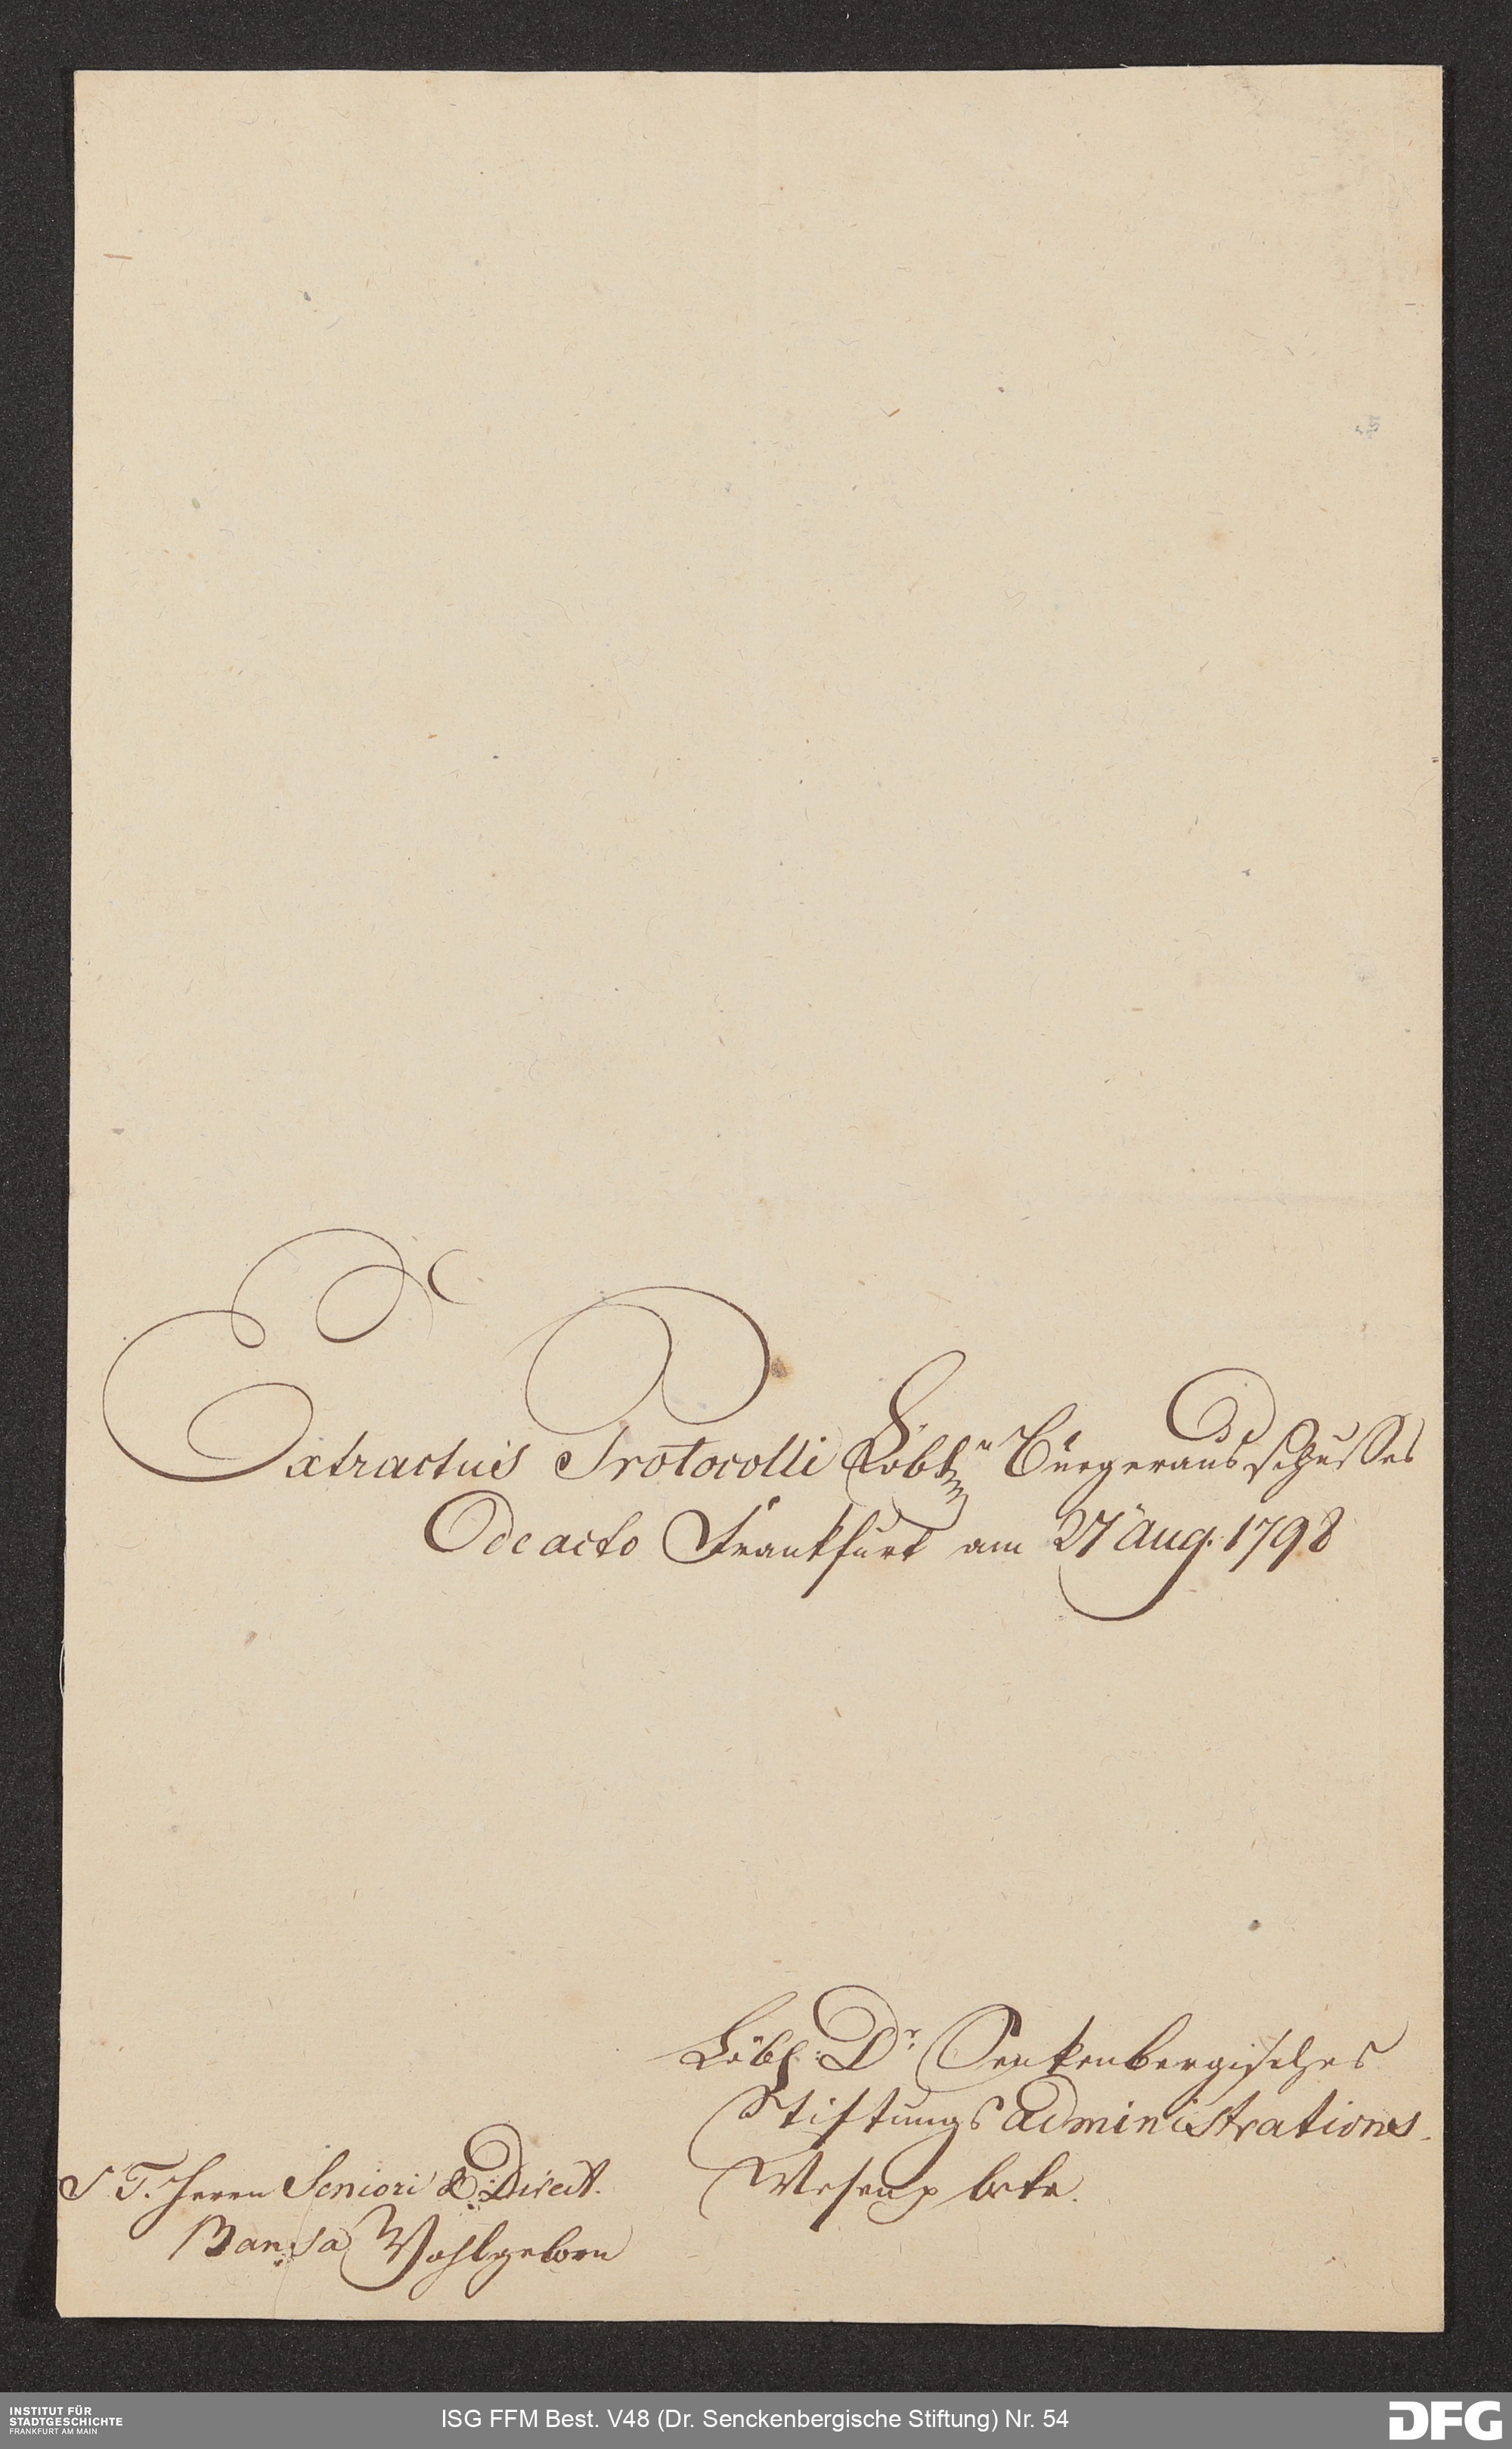 Extractus Protocolli Löbl.n Bürgerausschusses
de acto Frankfurt am 27 Aug. 1798
Löbl: Dr. Senkenbergisches
Stiftungs administrations
Wesen betr.
S. T. Herrn Seniori & Direct.
Bansa Wohlgeborn
INSTITUT FÜR
STADTGESCHICHTE
FRANKFURT AM MAIN
ISG FFM Best. V48 (Dr. Senckenbergische Stiftung) Nr. 54
DFG